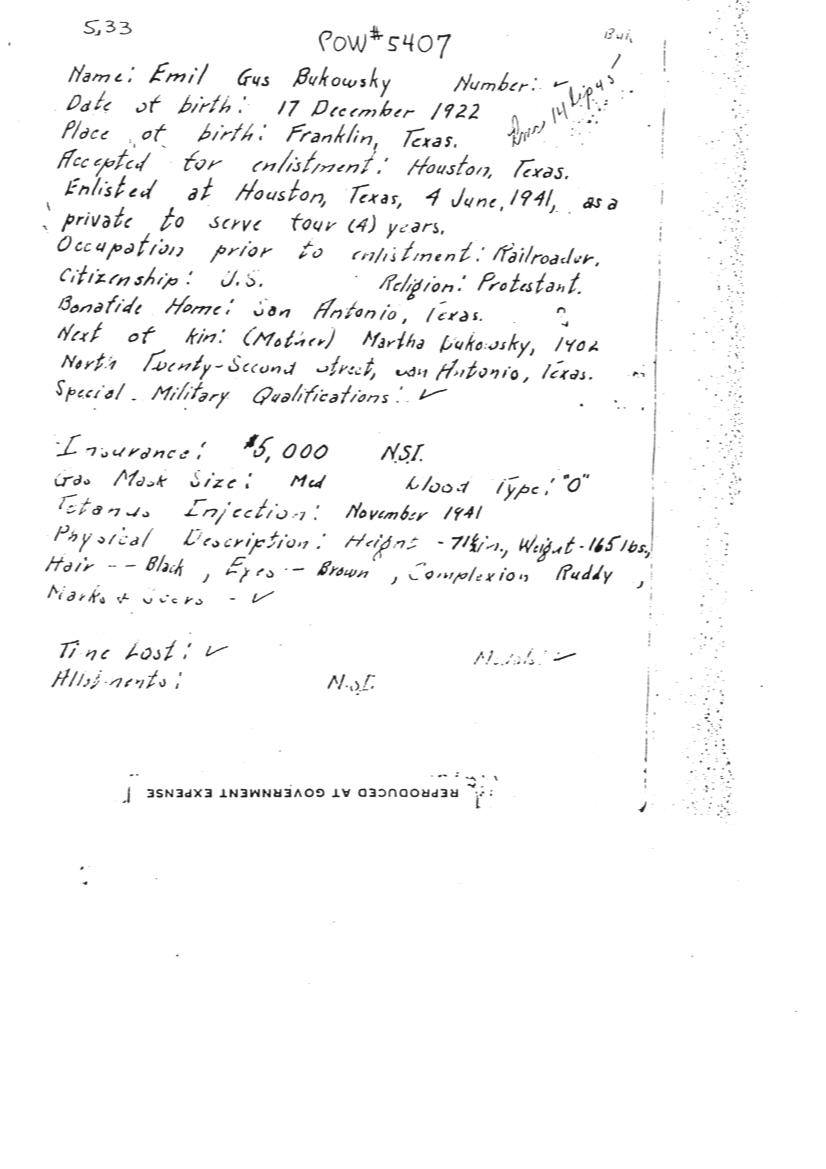 5,33
POW#5407
Name: Emil Gus Bukowsky Number: ✓
Date of birth: 17 December 1922
Place of birth: Franklin, Texas.
Accepted for enlistment: Houston, Texas.
Enlisted at Houston, Texas, 4 June, 1941, as a
private to serve four (4) years.
Occupation prior to enlistment: Railroader.
Citizenship: U.S. Religion: Protestant.
Bonafide Home: San Antonio, Texas.
Next of kin: (Mother) Martha Bukowsky, 1402
North Twenty-Second Street, San Antonio, Texas.
Special Military Qualifications: ✓
Insurance: $5,000 N.S.I.
Gas Mask Size: Med Blood Type: "O"
Tetanus Injection: November 1941
Physical Description: Height - 71½in., Weight - 165 lbs,
Hair -- Black, Eyes -- Brown, Complexion Ruddy,
Marks & Scars - ✓
Time Lost: ✓ Medals: ✓
Allotments: N.S.I.
REPRODUCED AT GOVERNMENT EXPENSE